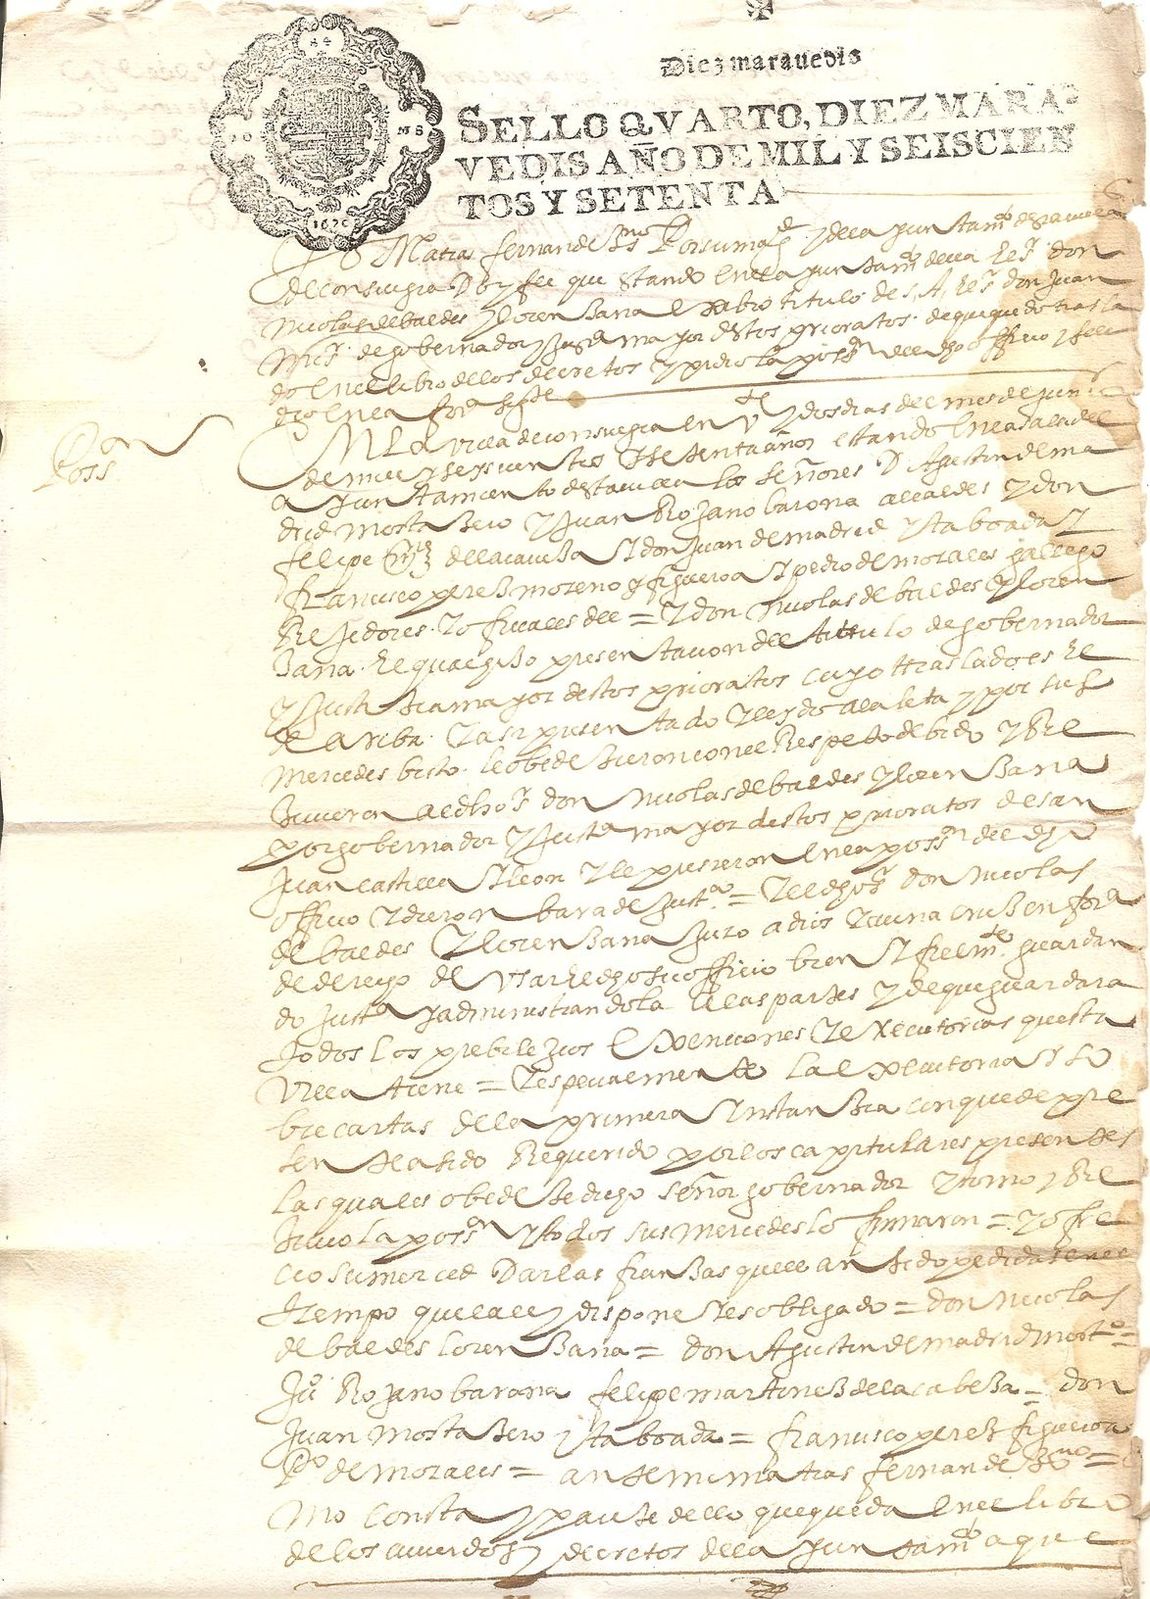 Diez maravedis
SELLO QVARTO, DIEZ MARA-
VEDIS AÑO DE MIL Y SEISCIEN
TOS Y SETENTA
1670
Yo Matias fernandez ssno Por su magd y de la yuntamto desta villa
de consuegra Doy fee que estando en el ayuntamto della el sr don
nicolas de baldes y lorenzana exsibio titulo de S. A. el sr don Juan
mi sr de gobernador y justa mayor destos prioratos de que quedo trasla
do en el libro de los decretos y pidio la posson del dho officio y se le
dio en la forma sigte
Posson
En La villa de consuegra en Ve y dos dias del mes de junio
de mill y seyscientos y setenta años estando en la sala del
a yuntamiento desta villa los señores D Agustin de ma
drid mostazero y Juan Rojano barona alcaldes y don
felipe mrz de la caveza y don Juan de madrid y taboada y
francisco perez moreno y figueroa y pedro de morales gallego
Rejidores y ofiziales del = y don nicolas de baldes y loren
zana el qual hizo presentacion del titulo de gobernador
y justizia mayor destos prioratos cuyo traslado es el
de arriba y asi presentado y leydo a la letra y por sus
mercedes bisto le obedezieron con el Respeto debido y Rre
zivieron al dho sr don nicolas de baldes y lorenzana
por gobernador y justa mayor destos prioratos de san
Juan castilla y leon y le pusieron en la posson del dho
officio y dieron bara de justa = y el dho sr don nicolas
de baldes y lorenzana juro a dios y a una cruz en forma
de derecho de Usar el dho su officio bien y fielmte guardan
do justa y administrandola a las partes y de que guardara
todos los prebilejios Exenciones y executorias questa
Villa tiene = y especialmente la executoria y so
brecartas de la primera instanzia con que de pre
sente a sido Requerido por los capitulares presentes
las quales obedezie dicho señor gobernador y tomo y Rre
zivio la posson y todos sus mercedes lo firmaron = y ofre
cio su merced Dar las fianzas que le an sido pedidas en el
tiempo que la ley dispone y es obligado = don nicolas
de baldes lorenzana = don Agustin de madrid mosto =
Ju° Rojano barona felipe martinez de la cabeza = don
Juan mostazero y taboada = francisco perez figueroa
P° de morales = ante mi matias fernandez ssno =
como consta y pareze dello que queda en el libro
de los acuerdos y decretos de la yuntamto a que